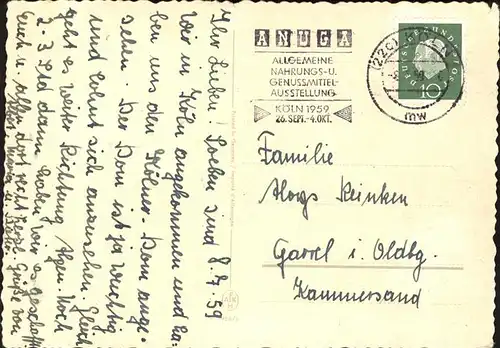 8.7.59
Ihr Lieben! Soeben sind
wir in Köln angekommen und ha-
ben uns den Kölner-Dom ange-
sehen. Der Dom ist ja wuchtig
und lohnt sich anzusehen. Gleich
geht es weiter Richtung Noch
2-3 Std dann haben wir es geschafft
Euch u. allen dort recht herzl. Grüße von
ANUGA
ALLGEMEINE
NAHRUNGS-U.
GENUSSMITTEL-
AUSSTELLUNG
KÖLN 1959
26. SEPT.-4. OKT.
(22c) KÖLN
mw
10
Familie
Aloys Reinken
Garrel i. Oldbg.
Kammersand